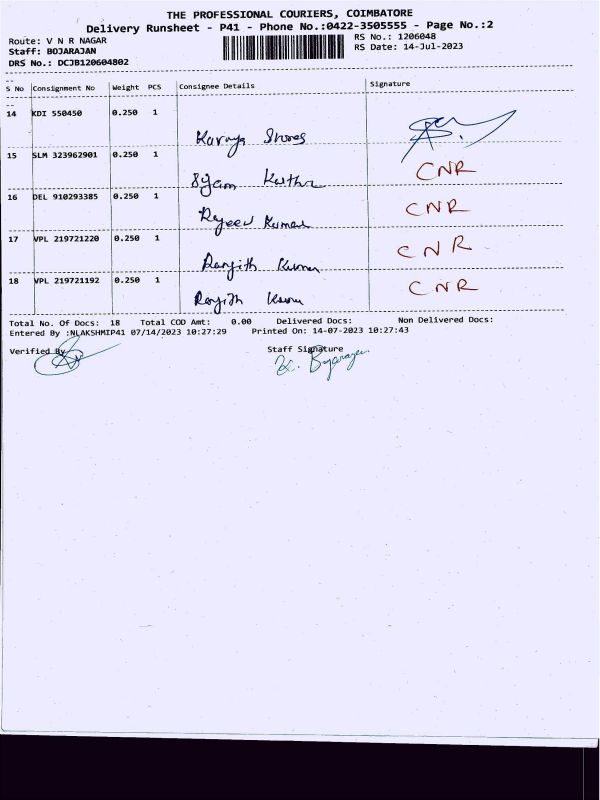 THE PROFESSIONAL COURIERS, COIMBATORE
Delivery Runsheet - P41 - Phone No.:0422-3505555 - Page No.:2
Route: V N R NAGAR
Staff: BOJARAJAN
DRS No.: DCJB120604802
RS No.: 1206048
RS Date: 14-Jul-2023
S No Consignment No Weight PCS Consignee Details Signature
14 KDI 550450 0.250 1
Kavya Stores
15 SLM 323962901 0.250 1 CNR
Syam
16 DEL 910293385 0.250 1 CNR
Rajeev Kumar
17 VPL 219721220 0.250 1 CNR
Ranjith Kumar
18 VPL 219721192 0.250 1 CNR
Ranjith Kumar
Total No. Of Docs: 18 Total COD Amt: 0.00 Delivered Docs: Non Delivered Docs:
Entered By :NLAKSHMIP41 07/14/2023 10:27:29 Printed On: 14-07-2023 10:27:43
Verified By Staff Signature
K. Bojarajan